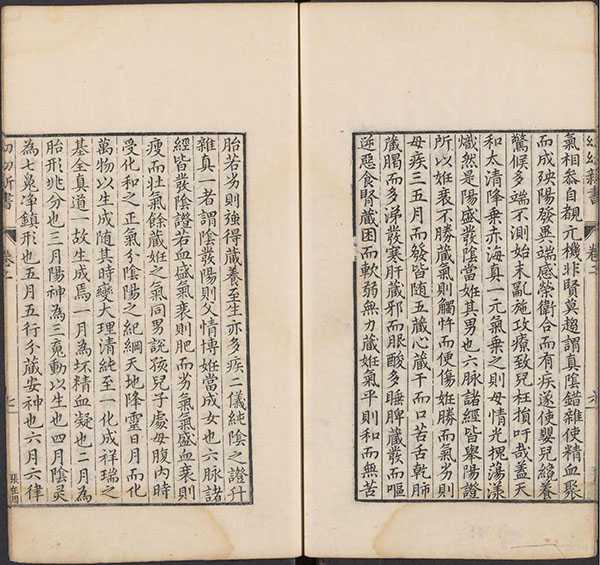 幼幼新書 卷二 六
氣相叅自覩元機非賢莫趨謂真陰錯雜使精血聚
而成殃陽發異端感榮衛合而有疾遂使嬰兒纔養
驚候多端不測始末亂施攻療致兒枉損吁哉蓋天
和太清降乗赤海真一元氣乗之則母情光槐蕩漾
熾然是陽盛發陰當姙其男也六脉諸經皆舉陽證
所以姙衰不勝藏氣則觸忤而便傷姙勝而氣劣則
母疾三五月而發皆隨五藏心藏干而口苦舌乾肺
藏而多涕發寒肝藏邪而眼酸多睡脾藏發而嘔
逆惡食腎藏困而軟弱無力藏姙氣平則和而無苦
胎若劣則強得藏養至生亦多疾二儀純陰之證升
雜真一者謂陰發陽則父情博姙當成女也六脉諸
經皆發陰證若血盛氣衰則肥而劣氣氣盛血衰則
瘦而壯氣餘藏姙之氣同男說孩兒子處母腹内時
受化和之正氣分陰陽之紀綱天地降靈日月而化
萬物以生成隨其時變大理清純至一化成祥瑞之
基全真道一故生成焉一月為坯精血凝也二月為
胎形兆分也三月陽神為三䰟動以生也四月陰灵
為七淨鎮形也五月五行分藏安神也六月六律
幼幼新書 卷二 七